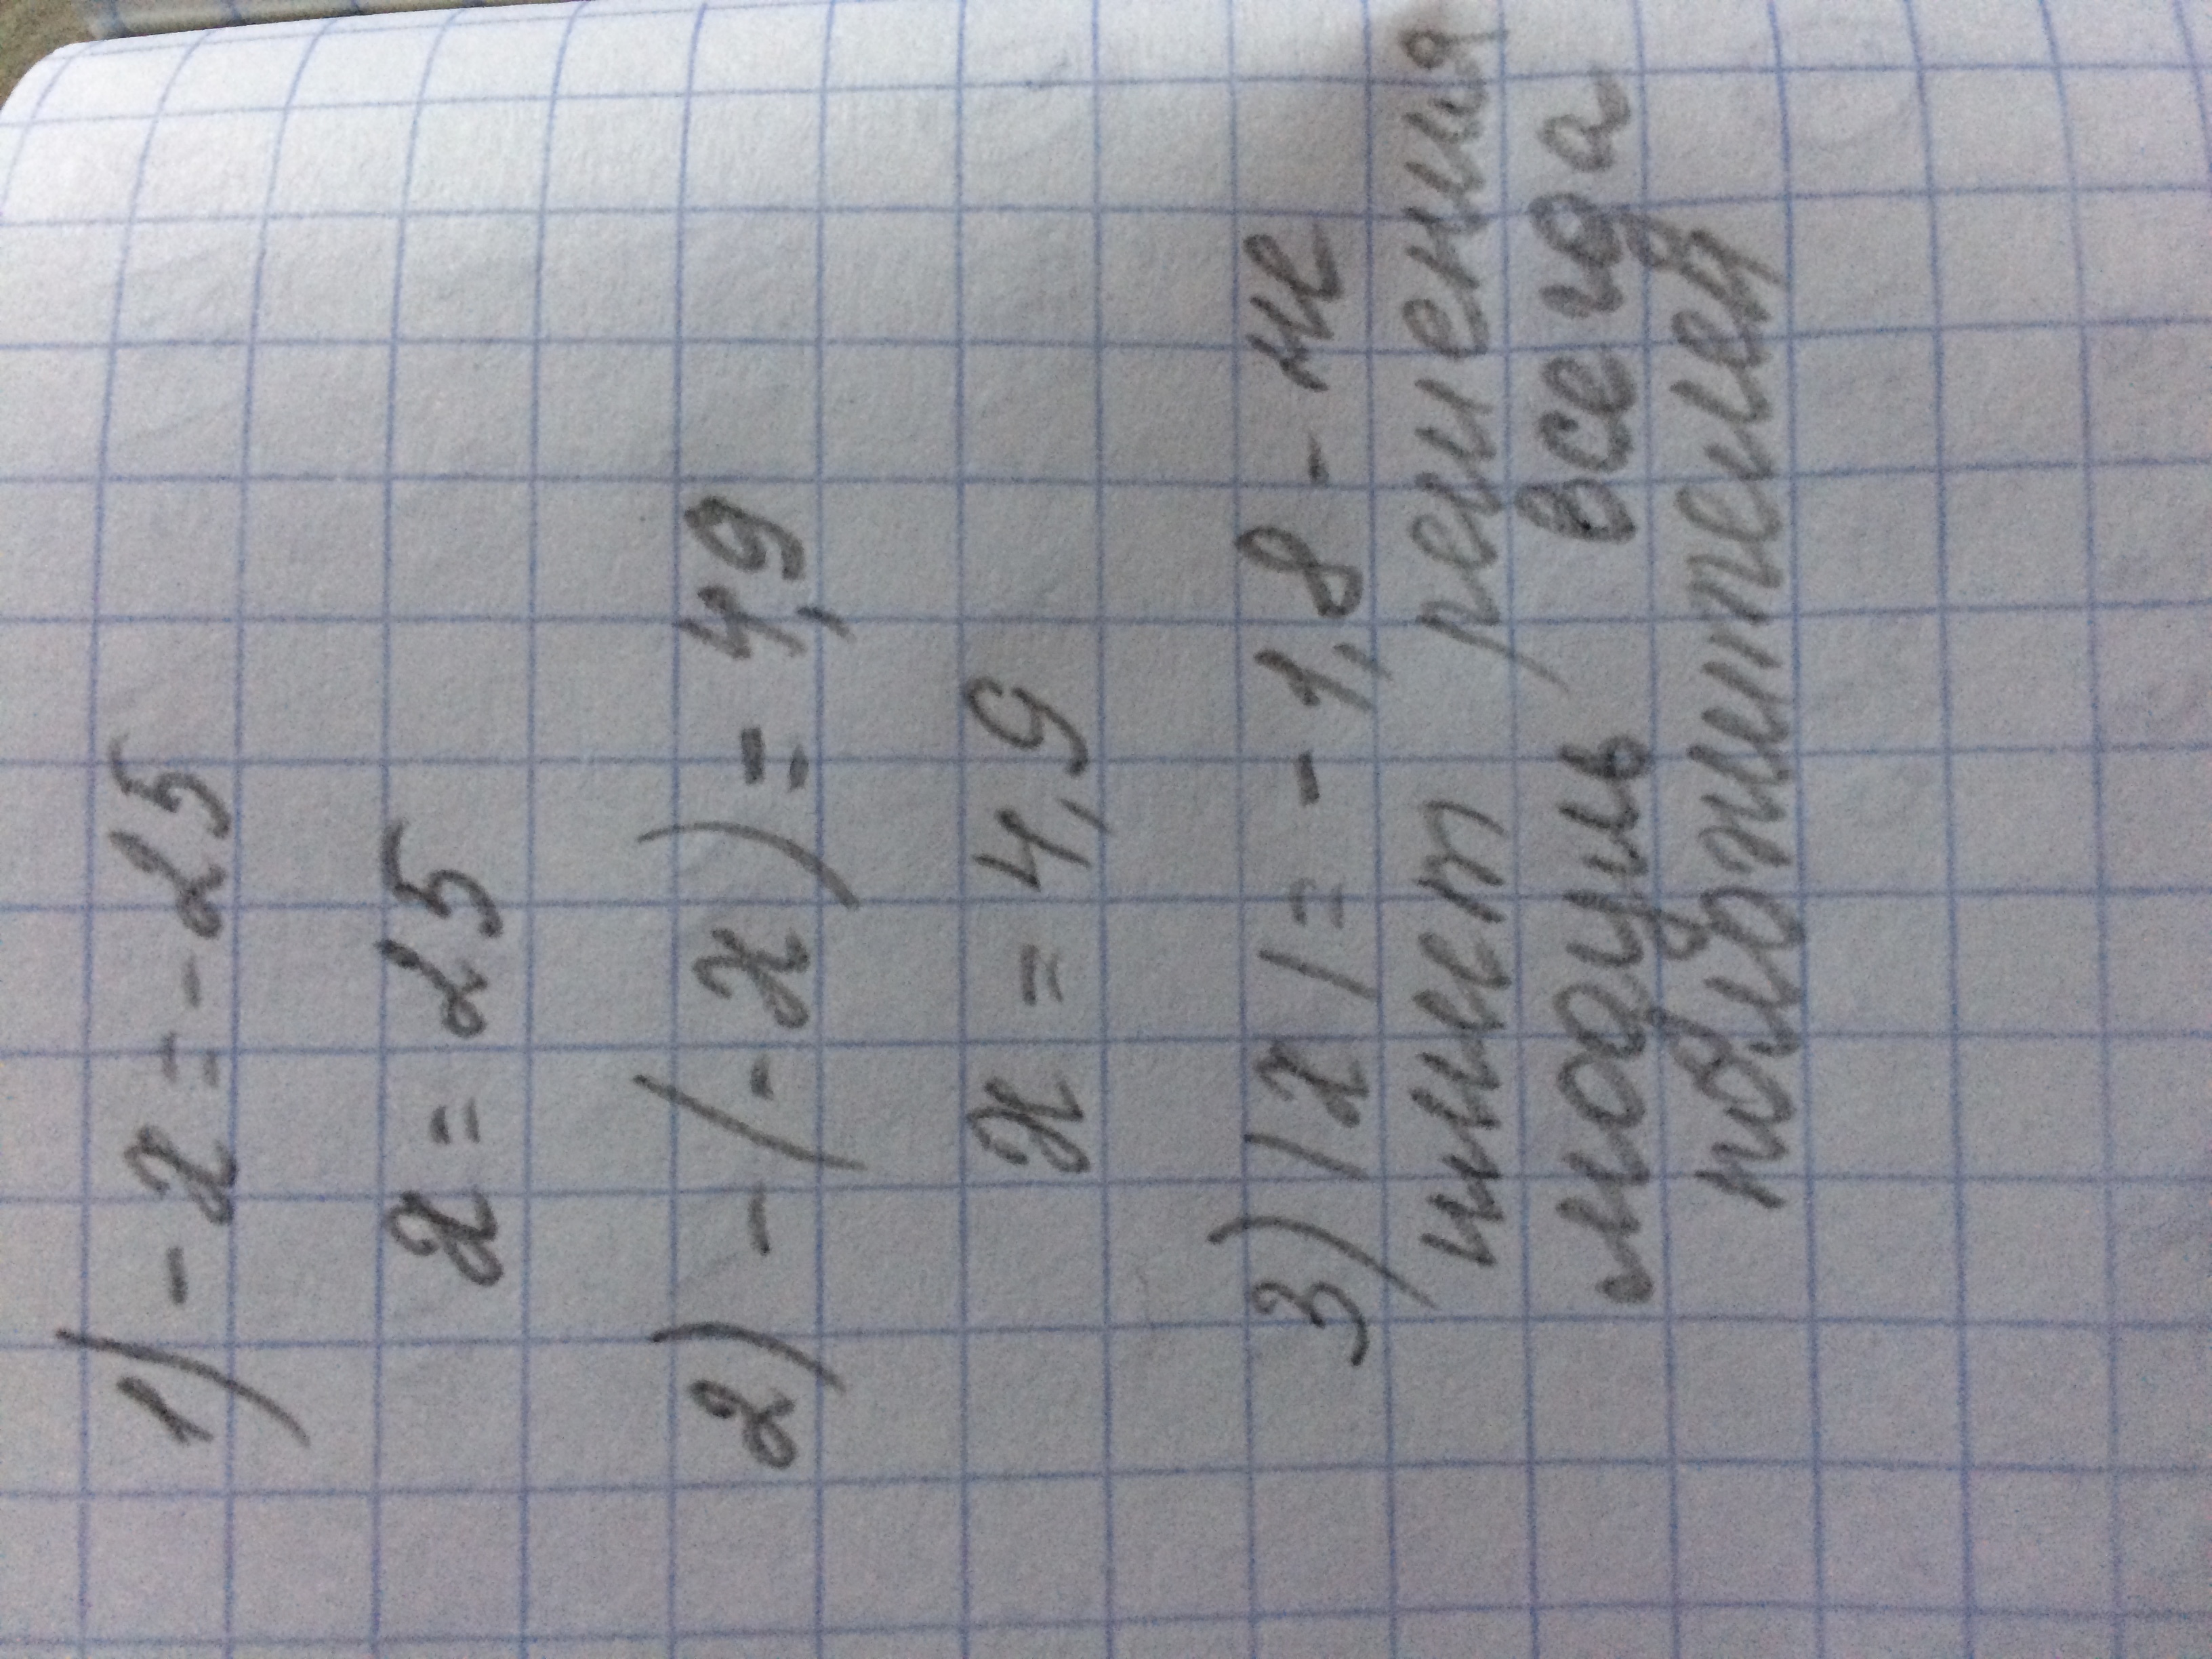 1) -x = -25
x = 25
2) -(-x) = 4,9
x = 4,9
3) |x| = -1,8 - не
имеет решения
модуль всегда
положителен